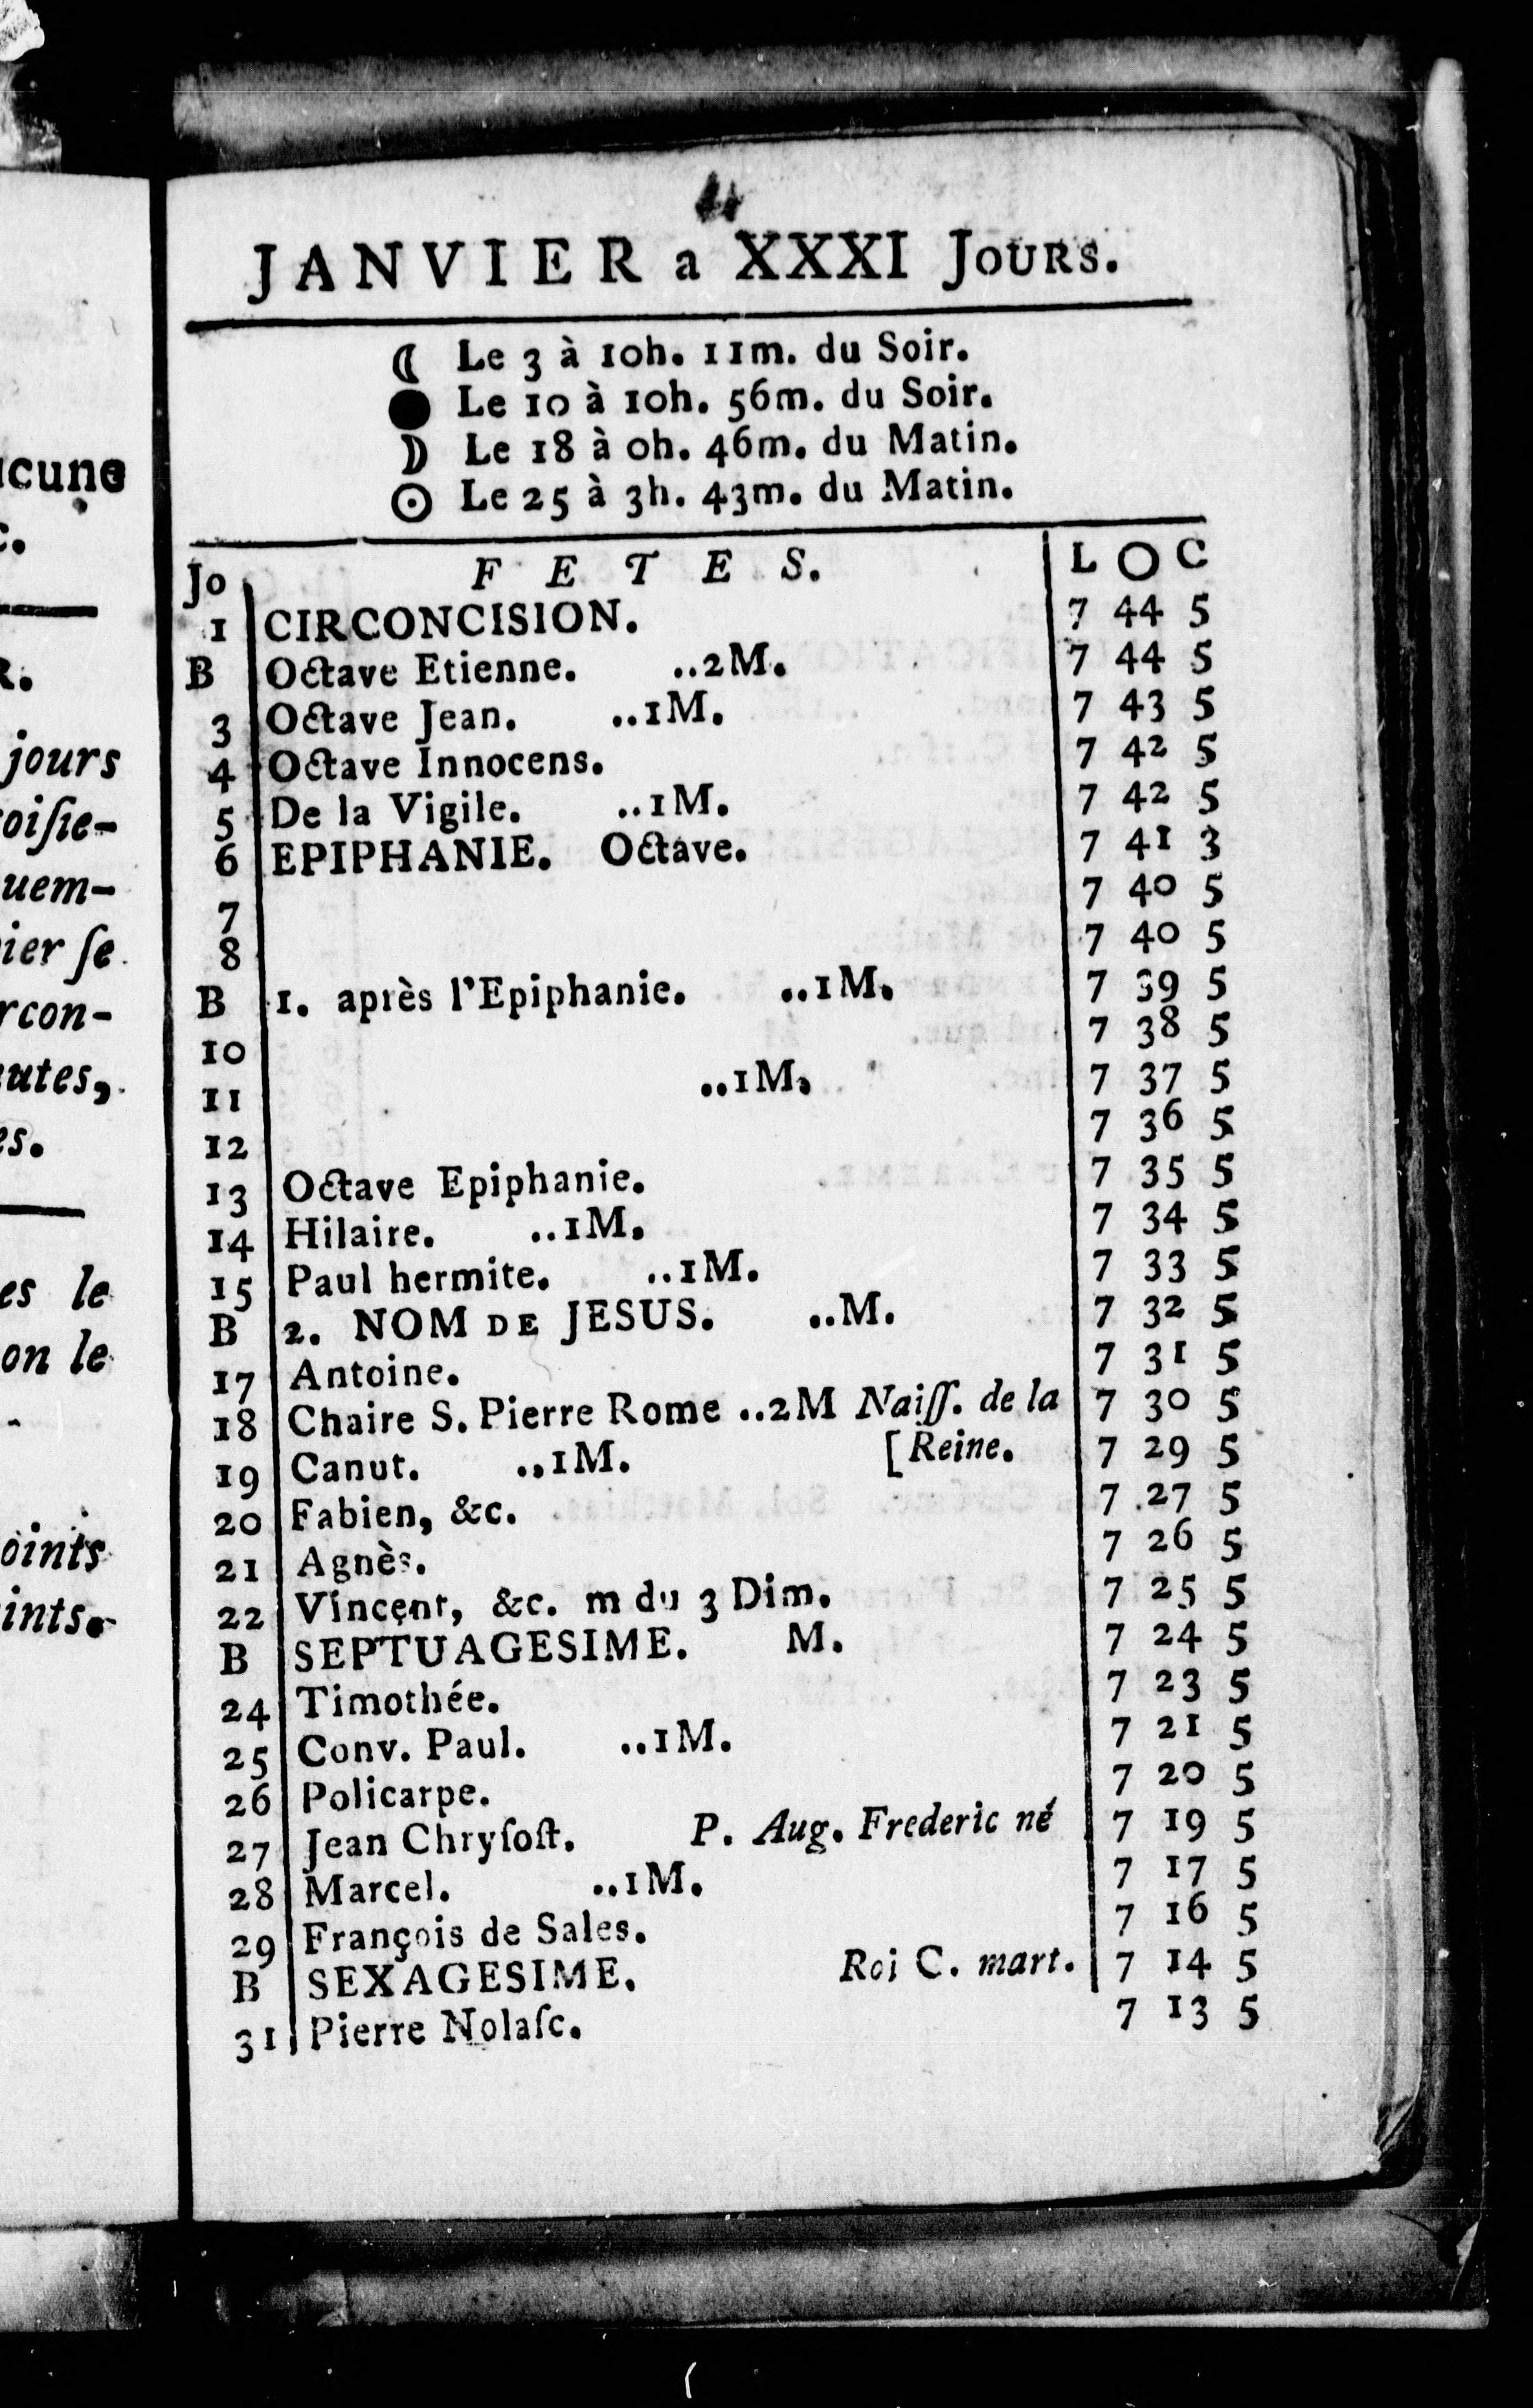 JANVIER a XXXI JOURS.
☾ Le 3 à 10h. 11m. du Soir.
● Le 10 à 10h. 56m. du Soir.
☽ Le 18 à 0h. 46m. du Matin.
☉ Le 25 à 3h. 43m. du Matin.
Jo FETES. L O C
1 CIRCONCISION. 7 44 5
B Octave Etienne. ..2M. 7 44 5
3 Octave Jean. ..1M. 7 43 5
4 Octave Innocens. 7 42 5
5 De la Vigile. ..1M. 7 42 5
6 EPIPHANIE. Octave. 7 41 3
7 7 40 5
8 7 40 5
B 1. après l'Epiphanie. ..1M. 7 39 5
10 7 38 5
11 ..1M. 7 37 5
12 7 36 5
13 Octave Epiphanie. 7 35 5
14 Hilaire. ..1M. 7 34 5
15 Paul hermite. ..1M. 7 33 5
B 2. NOM DE JESUS. ..M. 7 32 5
17 Antoine. 7 31 5
18 Chaire S. Pierre Rome ..2M Naiſſ. de la 7 30 5
19 Canut. ..1M. [Reine. 7 29 5
20 Fabien, &c. 7 27 5
21 Agnès. 7 26 5
22 Vincent, &c. m du 3 Dim. 7 25 5
B SEPTUAGESIME. M. 7 24 5
24 Timothée. 7 23 5
25 Conv. Paul. ..1M. 7 21 5
26 Policarpe. 7 20 5
27 Jean Chryſoſt. P. Aug. Frederic né 7 19 5
28 Marcel. ..1M. 7 17 5
29 François de Sales. 7 16 5
B SEXAGESIME. Roi C. mart. 7 14 5
31 Pierre Nolaſc. 7 13 5